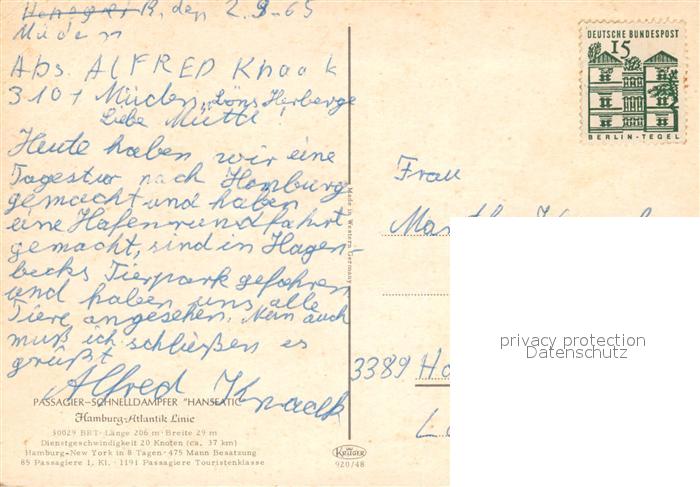 R, den 2.9.65
Müden
Abs. ALFRED Knaack
3101 Müden „Löns Herberge
Liebe Mutti!
Heute haben wir eine
Tagestur nach Hamburg
gemacht und haben
eine Hafenrundfahrt
gemacht, sind in Hagen-
becks Tierpark gefahren
und haben uns alle
Tiere angesehen. Nun auch
muß ich schließen es
grüßt
Alfred Knaack
PASSAGIER-SCHNELLDAMPFER "HANSEATIC"
Hamburg-Atlantik Linie
30029 BRT · Länge 206 m · Breite 29 m
Dienstgeschwindigkeit 20 Knoten (ca. 37 km)
Hamburg-New York in 8 Tagen · 475 Mann Besatzung
85 Passagiere 1. Kl. · 1191 Passagiere Touristenklasse
Made in Western Germany
KRÜGER
920/48
DEUTSCHE BUNDESPOST
15
BERLIN-TEGEL
Frau
3389
privacy protection
Datenschutz